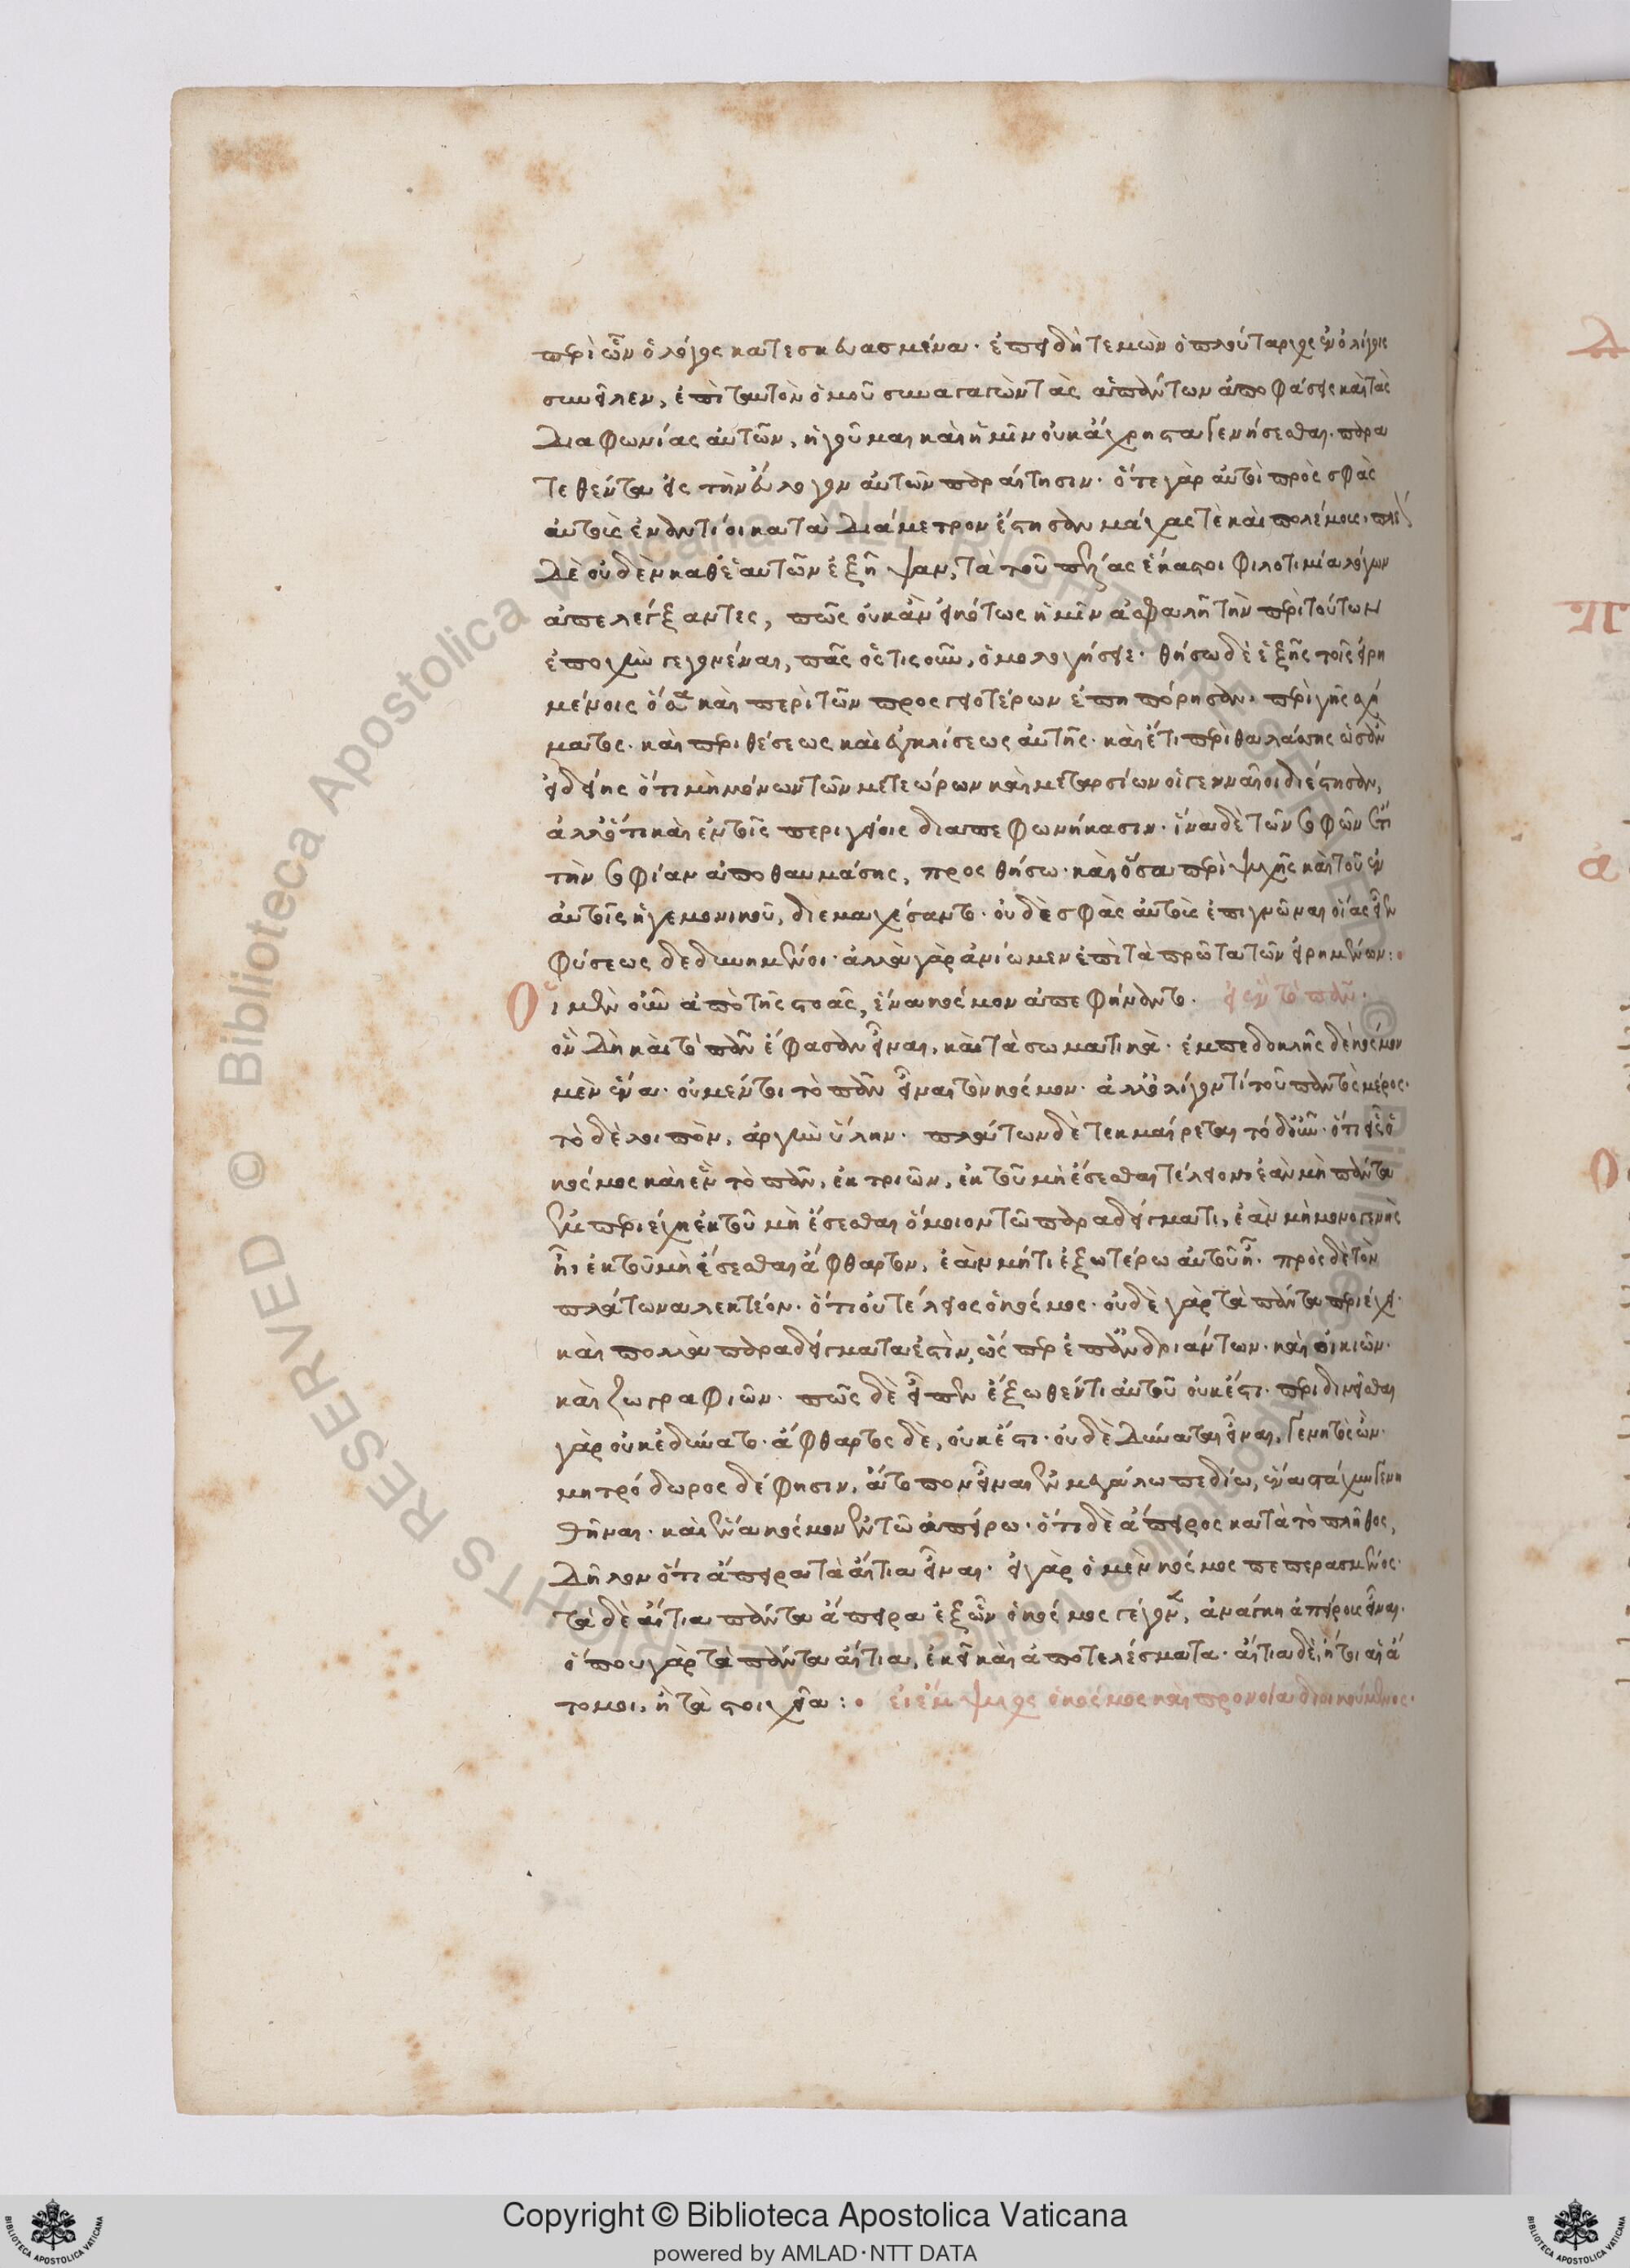 περὶ ὧν ὁ λόγος κατεσκευασμένα· ἐπειδήτε μὼν ὁ πλούταρχος ἐν ὀλίγοις
συνεῖλεν, ἐπιταυτὸν ὁμοῦ συναγαγὼν τὰς ἁπάντων ἀποφάσεις καὶ τὰς
διαφωνίας αὐτῶν, ἡγοῦμαι καὶ ἡμῖν οὐκ ἄχρηστα γενήσεσθαι· παρα
τεθέντα εἰς τὴν εὔλογον αὐτῶν παραίτησιν· ὅτε γὰρ αὐτοὶ πρὸς σφᾶς
αὐτοὺς ἐναντίοι κατα διάμετρον ἔστησαν μάχας τὲ καὶ πολέμους, πλέον
δὲ οὐδὲν καθ' ἑαυτῶν ἐξῆψαν, τὰ τοῦ πλησίας ἕκαστοι φιλοτιμία λόγων
ἀπελέγξαντες, πῶς οὐκ ἂν εἰκότως ἡμῖν ἀσφαλῆ τὴν περὶ τούτων
ἐποχὴν γεγονέναι, πᾶς ὅς τις οὖν, ὁμολογήσειε· θήσω δὲ ἑξῆς τοῖς εἰρη
μένοις ὅσα καὶ περὶ τῶν προςγειοτέρων ἐπηπόρησαν· περὶ γῆς σχή
ματος· καὶ περὶ θέσεως καὶ ἐγκλίσεως αὐτῆς· καὶ ἔτι περὶ θαλάσσης ὡς ἂν
εἰδείης ὅτι μὴ μόνων τῶν μετεώρων καὶ μεταρσίων οἱ γενναῖοι διέστησαν,
ἀλλ' ὅτι καὶ ἐν τοῖς περιγείοις διαπεφωνήκασιν· ἵνα δὲ τῶν σοφῶν ἔτι
τὴν σοφίαν ἀποθαυμάσης, προς θήσω· καὶ ὅσα περὶ ψυχῆς καὶ τοῦ ἐν
αὐτοῖς ἡγεμονικοῦ, διεμαχέσαντο· οὐδὲ σφᾶς αὐτοὺς ἐπιγνῶναι οἵας εἶεν
φύσεως δεδυνημένοι· ἀλλὰ γὰρ ἀνίωμεν ἐπὶ τὰ πρῶτα τῶν εἰρημένων:
Οἱ μὲν οὖν ἀπὸ τῆς στοᾶς, ἕνα κόσμον ἀπεφήναντο. εἰ ἓν τὸ πᾶν.
ὃν δὴ καὶ τὸ πᾶν ἔφασαν εἶναι, καὶ τὰ σωματικὰ· ἐμπεδοκλῆς δὲ κόσμον
μὲν ἕνα· οὐ μέντοι τὸ πᾶν εἶναι τὸν κόσμον· ἀλλ' ὀλίγον τί τοῦ παντὸς μέρος·
τὸ δὲ λοιπὸν, ἀργὴν ὕλην· πλάτων δὲ τεκμαίρεται τὸ δοκοῦν· ὅτι εἷς ὁ
κόσμος καὶ ἓν τὸ πᾶν, ἐκ τριῶν, ἐκ τοῦ μὴ ἔσεσθαι τέλειον, ἐὰν μὴ πάντα
ἐμπεριέχη, ἐκ τοῦ μὴ ἔσεσθαι ὅμοιον τῶ παραδείγματι, ἐὰν μὴ μονογενὴς
ἦ, ἐκ τοῦ μὴ ἔσεσθαι ἄφθαρτον, ἐὰν μή τι ἐξωτέρω αὐτοῦ ἦ· πρὸς δὲ τὸν
πλάτωνα λεκτέον· ὅτι οὐ τέλειος ὁ κόσμος· οὐδὲ γὰρ τὰ πάντα περιέχει·
καὶ πολλὰ παραδείγματα ἐστὶν, ὥςπερ ἐπ' ἀνδριάντων· καὶ οἰκιῶν·
καὶ ζωγραφιῶν· πῶς δὲ εἶπεν ἔξωθέν τι αὐτοῦ οὐκ ἔστι· περιδινεῖσθαι
γὰρ οὐκ ἐδύνατο· ἄφθαρτος δὲ, οὐκ ἔστι· οὐδὲ δύναται εἶναι, γενητὸς ὢν·
μητρόδωρος δέ φησιν, ἄτοπον εἶναι ἐν μεγάλω πεδίω, ἕνα στάχυν γενη
θῆναι· καὶ ἕνα κόσμον ἐν τῶ ἀπείρω· ὅτι δὲ ἄπειρος κατὰ τὸ πλῆθος,
δῆλον ὅτι ἄπειρα τὰ αἴτια εἶναι· εἰ γὰρ ὁ μὲν κόσμος πεπερασμένος·
τὰ δὲ αἴτια πάντα ἄπειρα ἐξ ὧν ὁ κόσμος γέγονεν, ἀνάγκη ἀπείρους εἶναι·
ὅπου γὰρ τὰ πάντα αἴτια, ἐκεῖ καὶ ἀποτελέσματα· αἴτια δὲ, ἤτοι αἱ ἄ
τομοι, ἢ τὰ στοιχεῖα: εἰ ἔμψυχος ὁ κόσμος καὶ προνοία διοικούμενος·